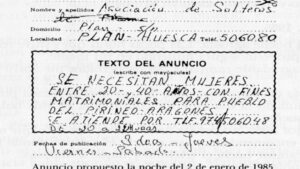 Nombre y apellidos Asociación de Solteros
Domicilio Plan s/n
Localidad PLAN-HUESCA Teléf. 506080
TEXTO DEL ANUNCIO
(escriba con mayúsculas)
SE NECESITAN MUJERES
ENTRE 20-y 40-AÑOS-CON FINES
MATRIMONIALES PARA PUEBLO
DEL PIRINEO-ARAGONES
SE ATIENDE POR TLF. 974/506048
DE 20 A
Fechas de publicación 3 dias - Jueves
Viernes - Sabado
Anuncio propuesto la noche del 2 de enero de 1985